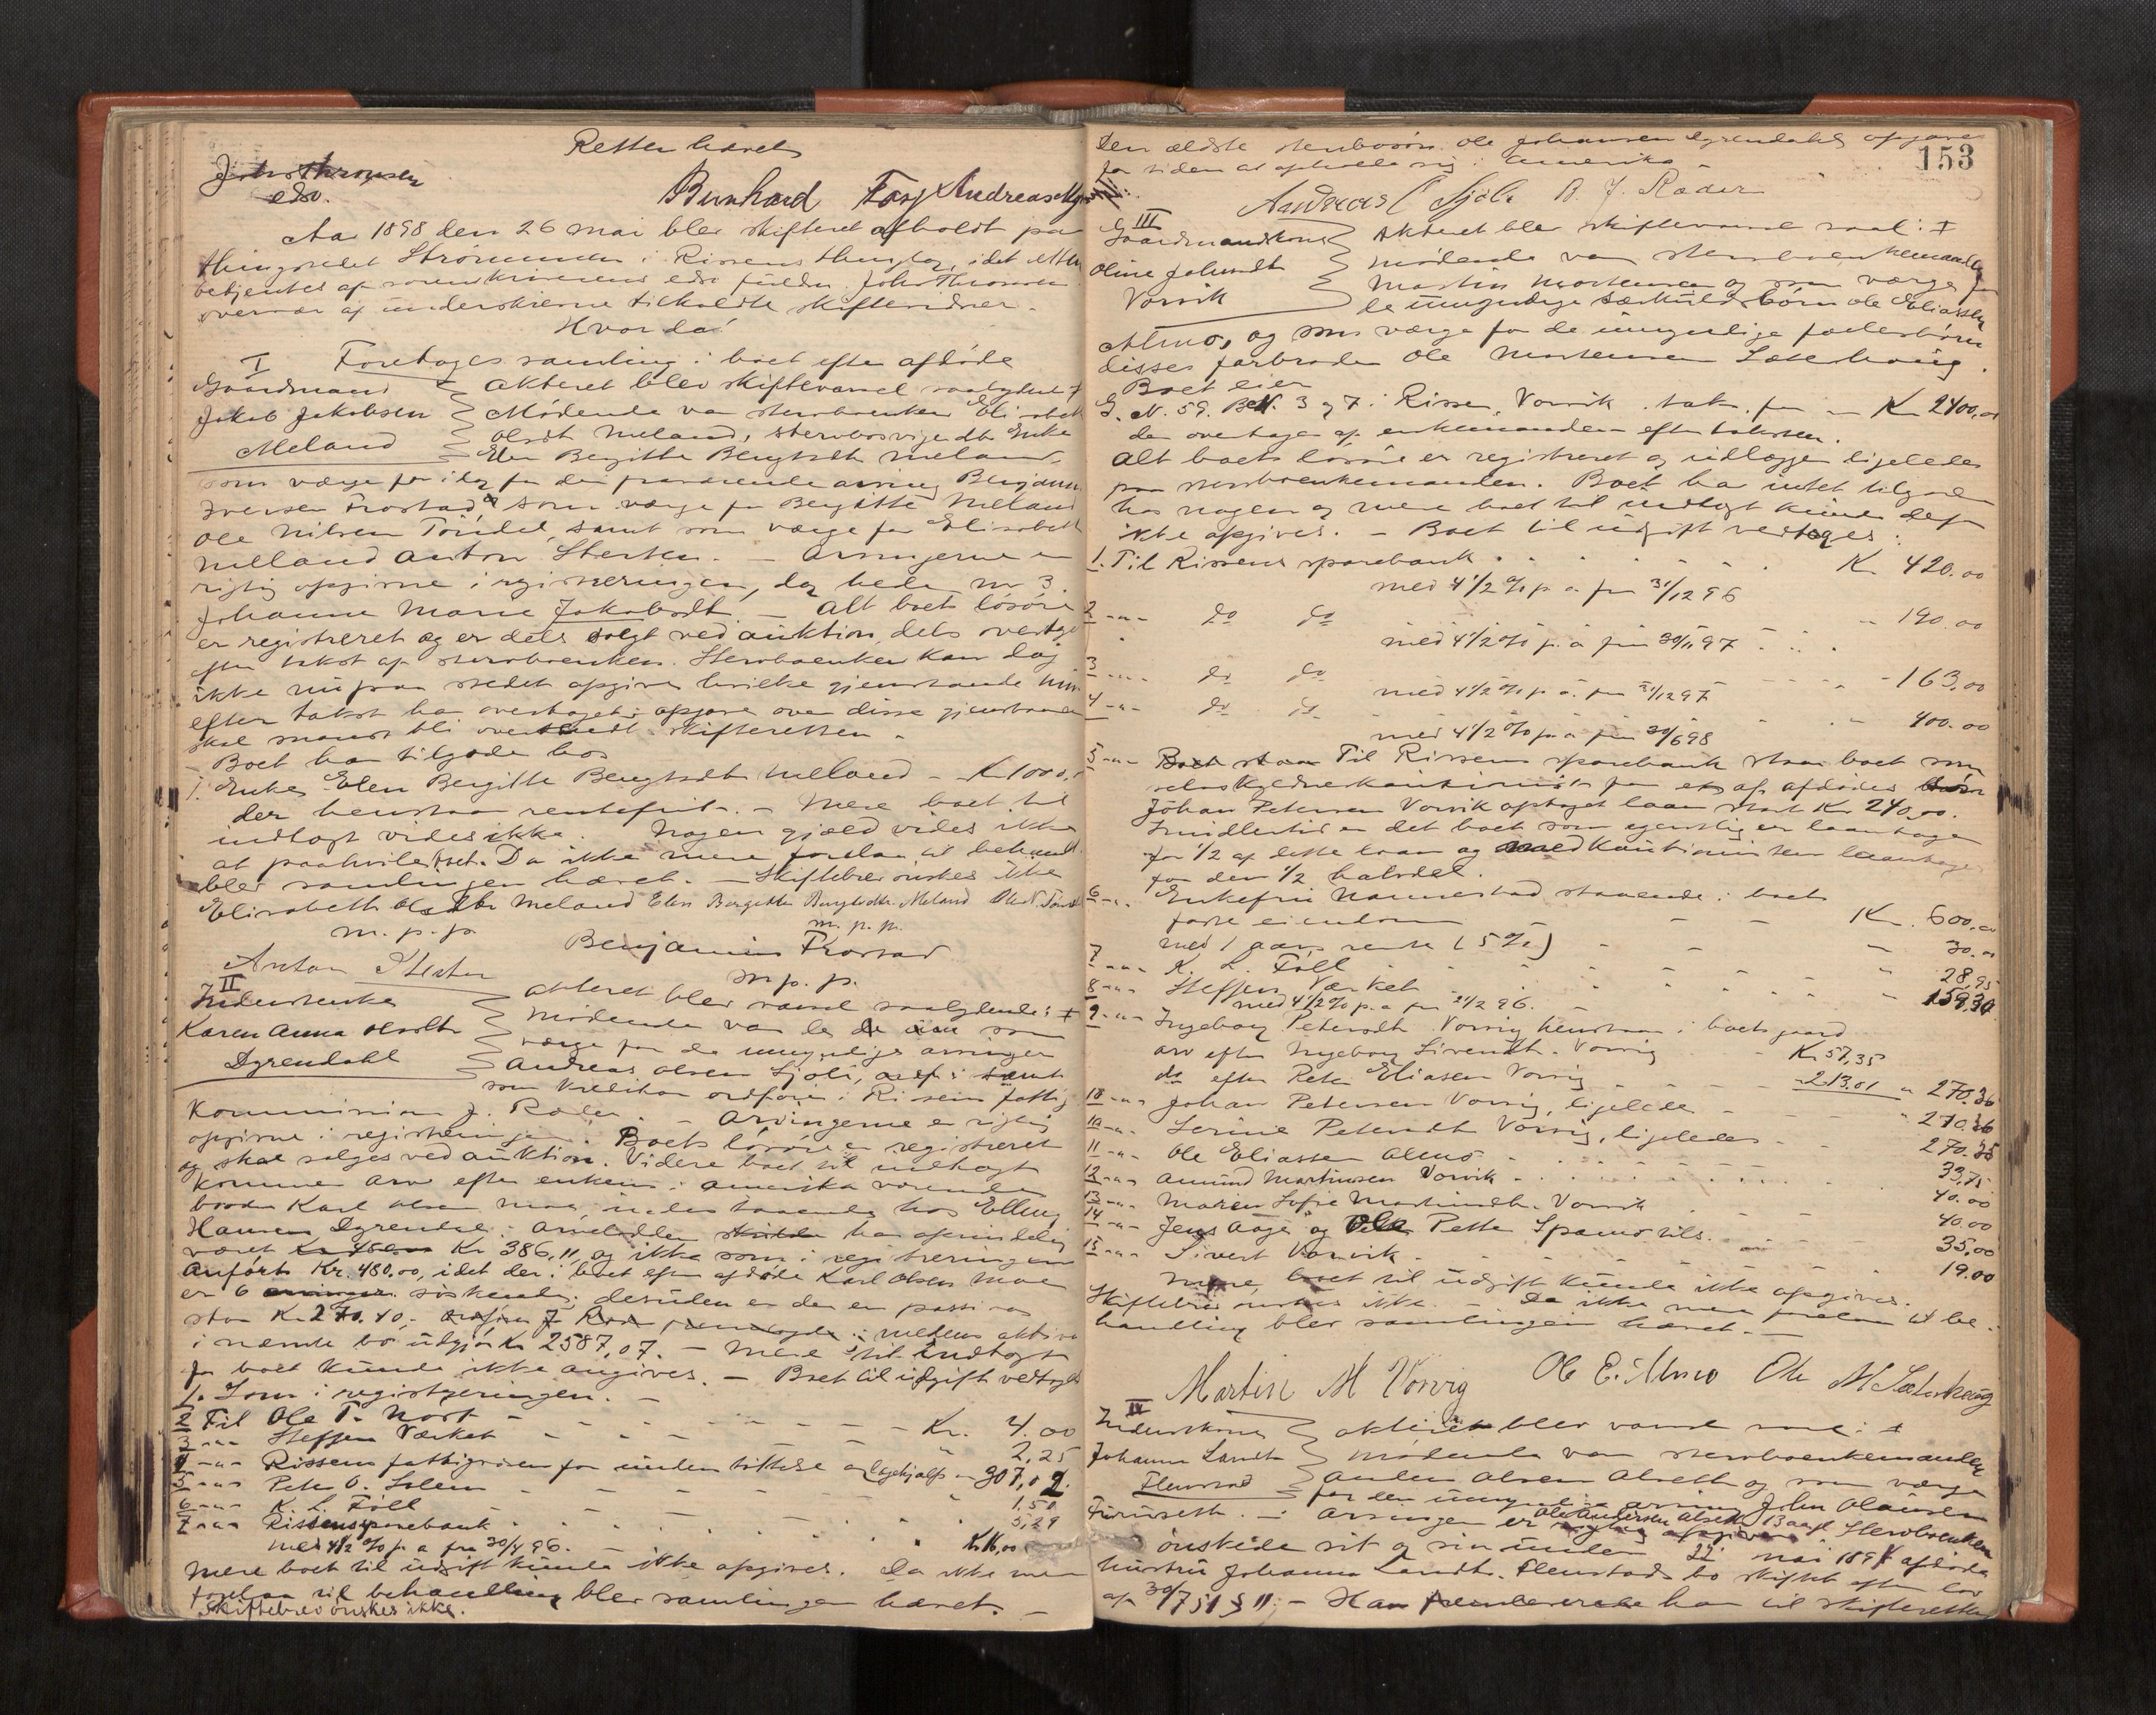 Retten hævet
John Thronsen
edsv.
Bernhard Foss Andreas
Aar 1898 den 26 mai blev skifteret afholdt paa
thingstedet Strømmen i Rissens thinglag, idet retten
betjentes af sorenskriverens edsv fuldm. John Thronsen
overvær af underskrevne tilkaldte skiftevidner.
Hvor da:
I Foretoges samling i boet efter afdøde
Gaardmand
Jakob Jakobsen
Meland
Akteret blev skiftevarsel saalydende #
Mødende var sterboenken Elisabeth
Olsdt Meland, Enke
Elen Bergitte Bengtsdtr Meland
som værge for i dag for den fraværende arving Benjamin
Iversen Frostad, som værge for Bergitte Meland
Ole Nilsen Tøndel, samt som værge for Elisabeth
Melland Anton Sterten. - Arvingerne er
rigtig opgivne i registreringen, dog hede nr 3
Johanna Marie Jakobsdt. - Alt boets løsøre
er registreret og er dels solgt ved auktion, dels overtaget
efter takst af sterboenken. Sterboenken kan dog
ikke nu paa stedet opgive hvilke gjenstande hun
efter takst har overtaget; opgave over disse gjenstande
skal snarest bli oversendt skifteretten. -
Boet har tilgode hos
1. Enke Elen Bergitte Bengtsdt Melland - Kr 1000,
der henstaar rentefrit. - Mere boet til
indtægt vides ikke. Nogen gjæld vides ikke
at paahvile boet. Da ikke mere forelaa til behandl.
blev samlingen hævet. - Skiftebrev ønskes ikke
Elisabeth Olsdtr Meland Elen Bergitte Bengtsdtr Meland Ole N. Tøndel
m. p. p. m. p. p.
Benjamin Frostad
Anton Sterten m. p. p.
II
Inderstenke
Karen Anna Olsdtr
Dyrendahl
Akteret blev varsel saalydende: #
Mødende var som
værge for de umyndige arvinger
Andreas Olsen Sjøli, samt
som kreditor ordfører i Rissens fattig
kommission J. Røder. - Arvingerne er rigtig
opgivne i registreringen. Boets løsøre er registreret
og skal selges ved auktion. Videre boet til indtægt
kommer arv efter enkens i Amerika værende
broder Karl Olsen Moe, indestaaende hos Elling
Hansen Dyrendal. Arvelodden har oprindelig
været Kr 386,11 og ikke som i registreringen
anført Kr. 480,00, idet der i boet efter afdøde Karl Olsen Moe
er 6 søskende; desuden er der en passiva
stor Kr 270.40, medens aktiva
i nævnte bo udgjør Kr 2587,07. - Mere til indtægt
for boet kunde ikke angives. - Boet til udgift vedtoges
1. Som i registreringen. -
2 Til Ole T. Nost - Kr. 4.00
3 -"- Steffen Værket - 2,25
4 -"- Rissens fattigvæsen for understøttelse og lægehjælp " 307,02
5 -"- Peter O. Solem
6 -"- K. L. Føll " 1,50
7 -"- Rissens sparebank " 5,29
med 4 1/2 % p. a fra 30/4 96. - " Kr 16,00
Mere boet til udgift kunde ikke opgives. Da ikke mere
forelaa til behandling blev samlingen hævet. -
Skiftebrev ønskes ikke.
Den ældste sterbosøn Ole Johansen Dyrendahl opgaves
for tiden at opholde sig i Amerika -
153
Andreas O Sjøli B. J. Røder
III
Gaardmandskone
Oline Johansdt
Vorvik
Akteret blev skiftevarsel saal: #
mødende var sterboenkemanden
Martin Mortensen og som værge for
de umyndige særkuldsbørn Ole Eliassen
Almo, og som værge for de umyndige fællesbørn
disses farbroder Ole Mortensen Sæterhaug.
Boet eier
G. N. 59. B. N. 3 og 7 i Rissen, Vorvik. takst. for - Kr 2400,00
den overtages af enkemanden efter taksten.
Alt boets løsøre er registreret og udlægges ligeledes
paa sterboenkemanden. Boet har intet tilgode
hos nogen og mere boet til indtægt kunde derfor
ikke opgives. - Boet til udgift vedtoges:
1. Til Rissens sparebank Kr. 420.00
med 4 1/2 % p. a fra 31/12 96
2 -"- do do " 190.00
med 4 1/2 % p. a fra 30/11 97
3 -"- do do - 163,00
med 4 1/2 % p. a. fra 31/12 97
4 -"- do do " 400.00
med 4 1/2 % p. a fra 30/6 98
5 -"- Til Rissens sparebank staar boet som
selvskyldnerkautionist for et af afdødes søn
Johan Petersen Vorvik optaget laan stort Kr 240,00.
Imidlertid er det boet som egentlig er laantager
for 1/2 af dette laan og medkautionisten laantager
for den 1/2 halvdel.
6 -"- Enkefru Nannestad staaende i boets
faste eiendom - - Kr. 600,00
med 1 aars rente (5 %) - " 30.00
7 -"- K. L. Føll " 28,95
8 -"- Steffen Værket " 159,30
med 4 1/2 % p. a fra 31/12 96.
9 -"- Ingeborg Petersdt Vorvig henstaar i boets gaard
arv efter Ingeborg Sivertsdt. Vorvig - Kr 57,35
do efter Peter Eliasen Vorvig - 213.01 " 270.36
10 -"- Johan Petersen Vorvig, ligeledes - " 270.36
10a -"- Serine Petersdt Vorvig, ligeledes - 270.35
11 -"- Ole Eliassen Almo 33,75
12 -"- Amund Martinsen Vorvik 40.00
13 -"- Maren Sofie Martinsdt. Vorvik 40.00
14 -"- Jens Aage og Petter Spamo 35,00
15 -"- Sivert Vorvik 19.00
Mere boet til udgift kunde ikke opgives.
Skiftebrev ønskes ikke. - Da ikke mere forelaa til be-
handling blev samlingen hævet. -
Martin M Vorvig Ole E. Almo Ole M Sæterhaug
IV
Inderstkone
Johanna Larsdt
Flenstad
akteret blev varsel saal: #
mødende var sterboenkemanden
Anders Olsen Alseth og som værge
for den umyndige arving John Olausen
Furuseth. - Arvingen er rigtig opgiven Sterboenkem.
Ole Andersen Alseth Baagl.
ønskede sit og sin under 22 mai 189 afdøde
hustru Johanna Larsdt. Flenstads bo skiftet efter lov
af 30/7 51 § 11. - Han har til skifteretten